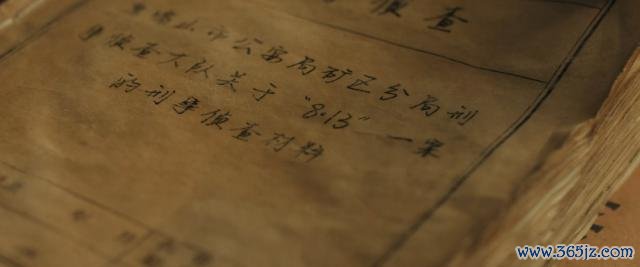 侦查
山市公安局矿区分局刑
事侦查大队关于“8·13”一案
的刑事侦查材料
www.365jz.com